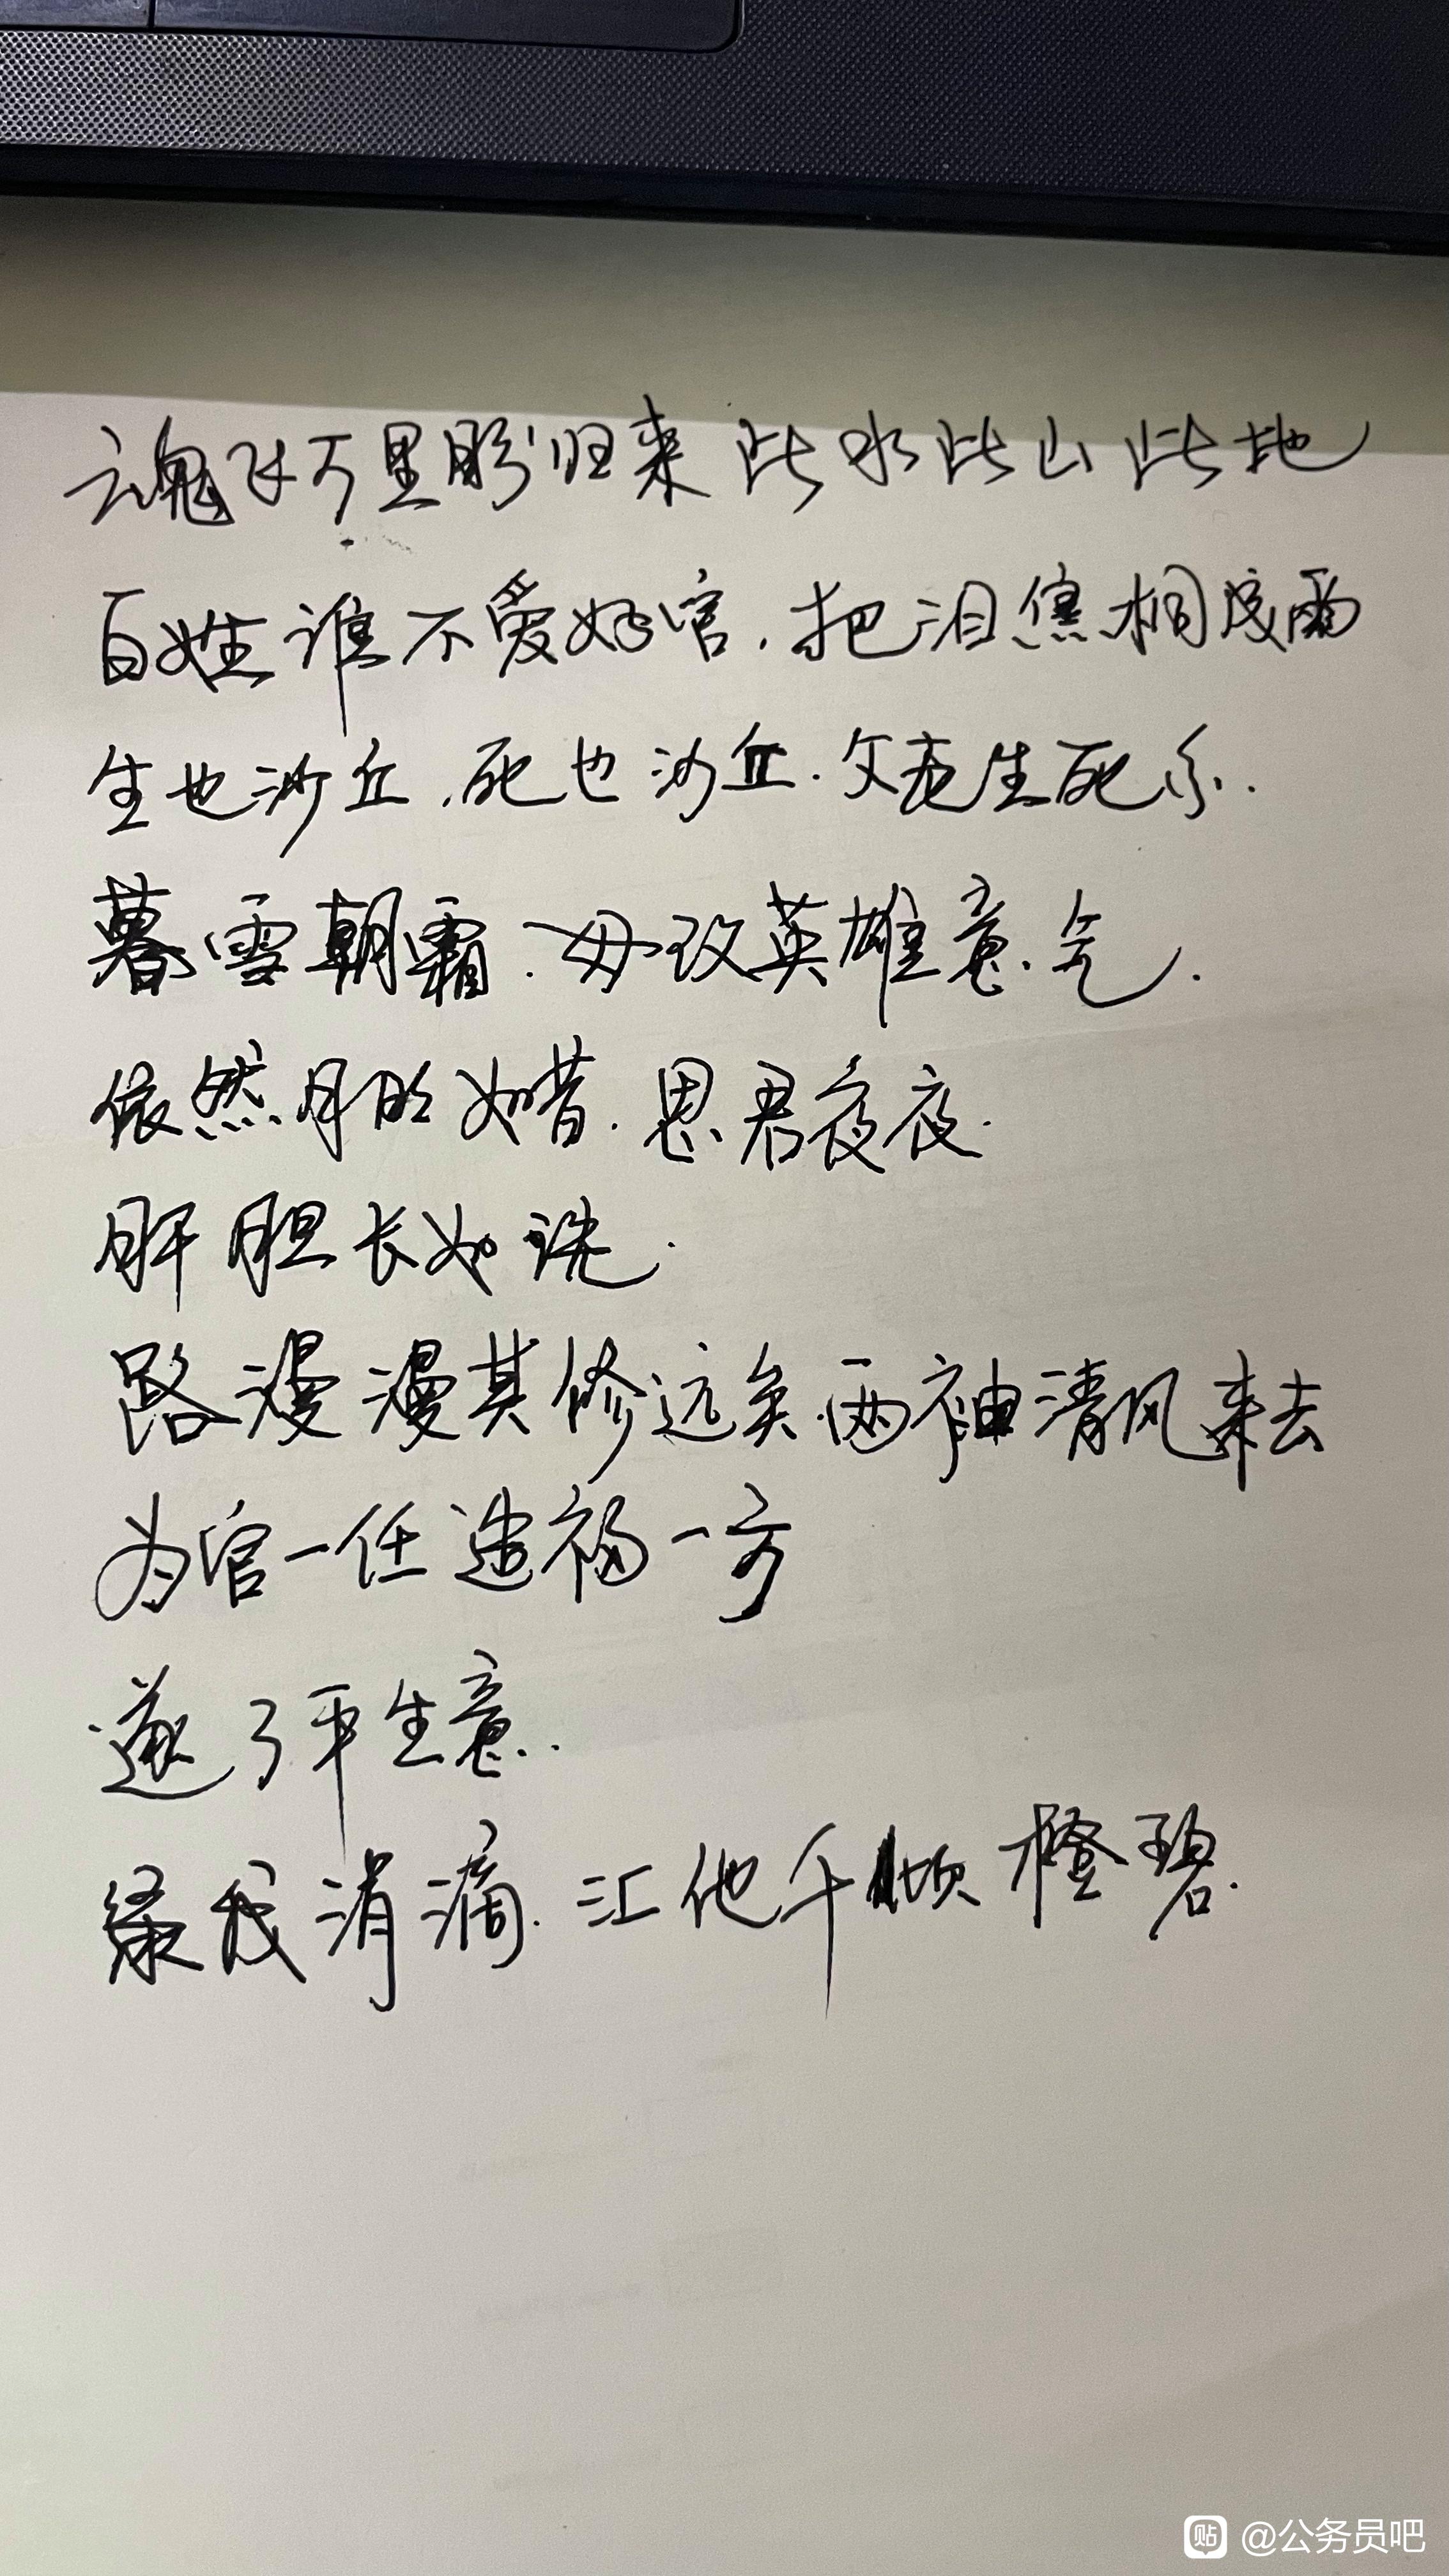 魂飞万里盼归来 此水此山此地
百姓谁不爱好官.把泪焦桐成雨
生也沙丘.死也沙丘.父老生死系.
暮雪朝霜.毋改英雄意气.
依然月明如昔.思君夜夜.
肝胆长如洗.
路漫漫其修远矣.两袖清风来去
为官一任造福一方
遂了平生意..
绿我涓滴.汇他千顷橙碧.
贴 @公务员吧